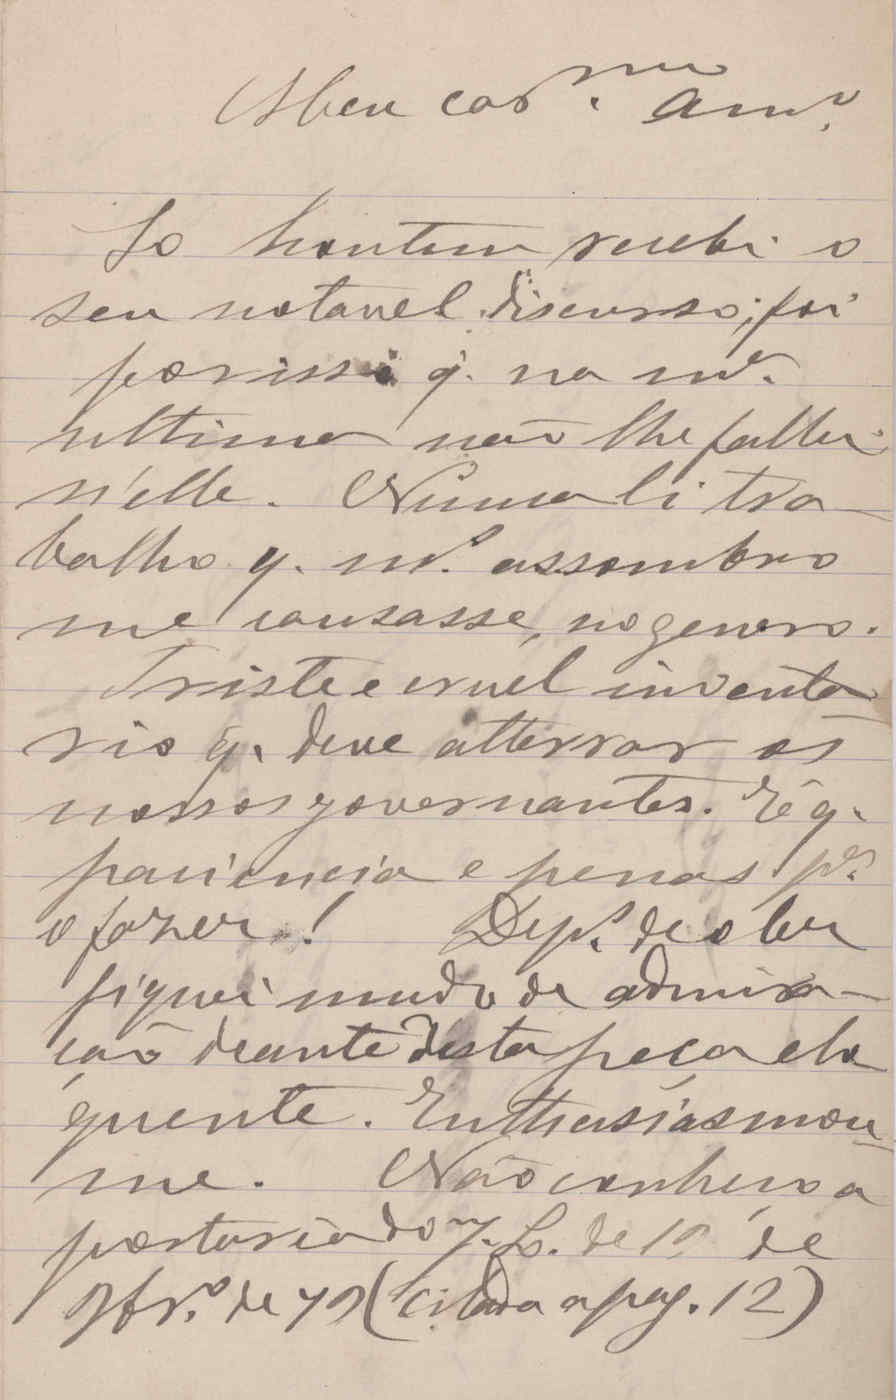 Meu car.mo Am.o
So hontem recebi o
seu notavel discurso; foi
porisso q. na m.a
ultima não lhe fallei
n'elle. Nunca li tra-
balho q. m.s assombro
me causasse, no genero.
Triste e cruel inventa
rio q. deve atterrar os
nossos governantes. E q.
paciencia e penas p.a
o fazer! Dep.s de o ler
fiquei mudo de admira-
ção deante desta peça elo
quente. Enthusiasmou-
me. Não conheço a
portaria do de 10 de
Sfvr.o de 79 (citada a pag. 12)